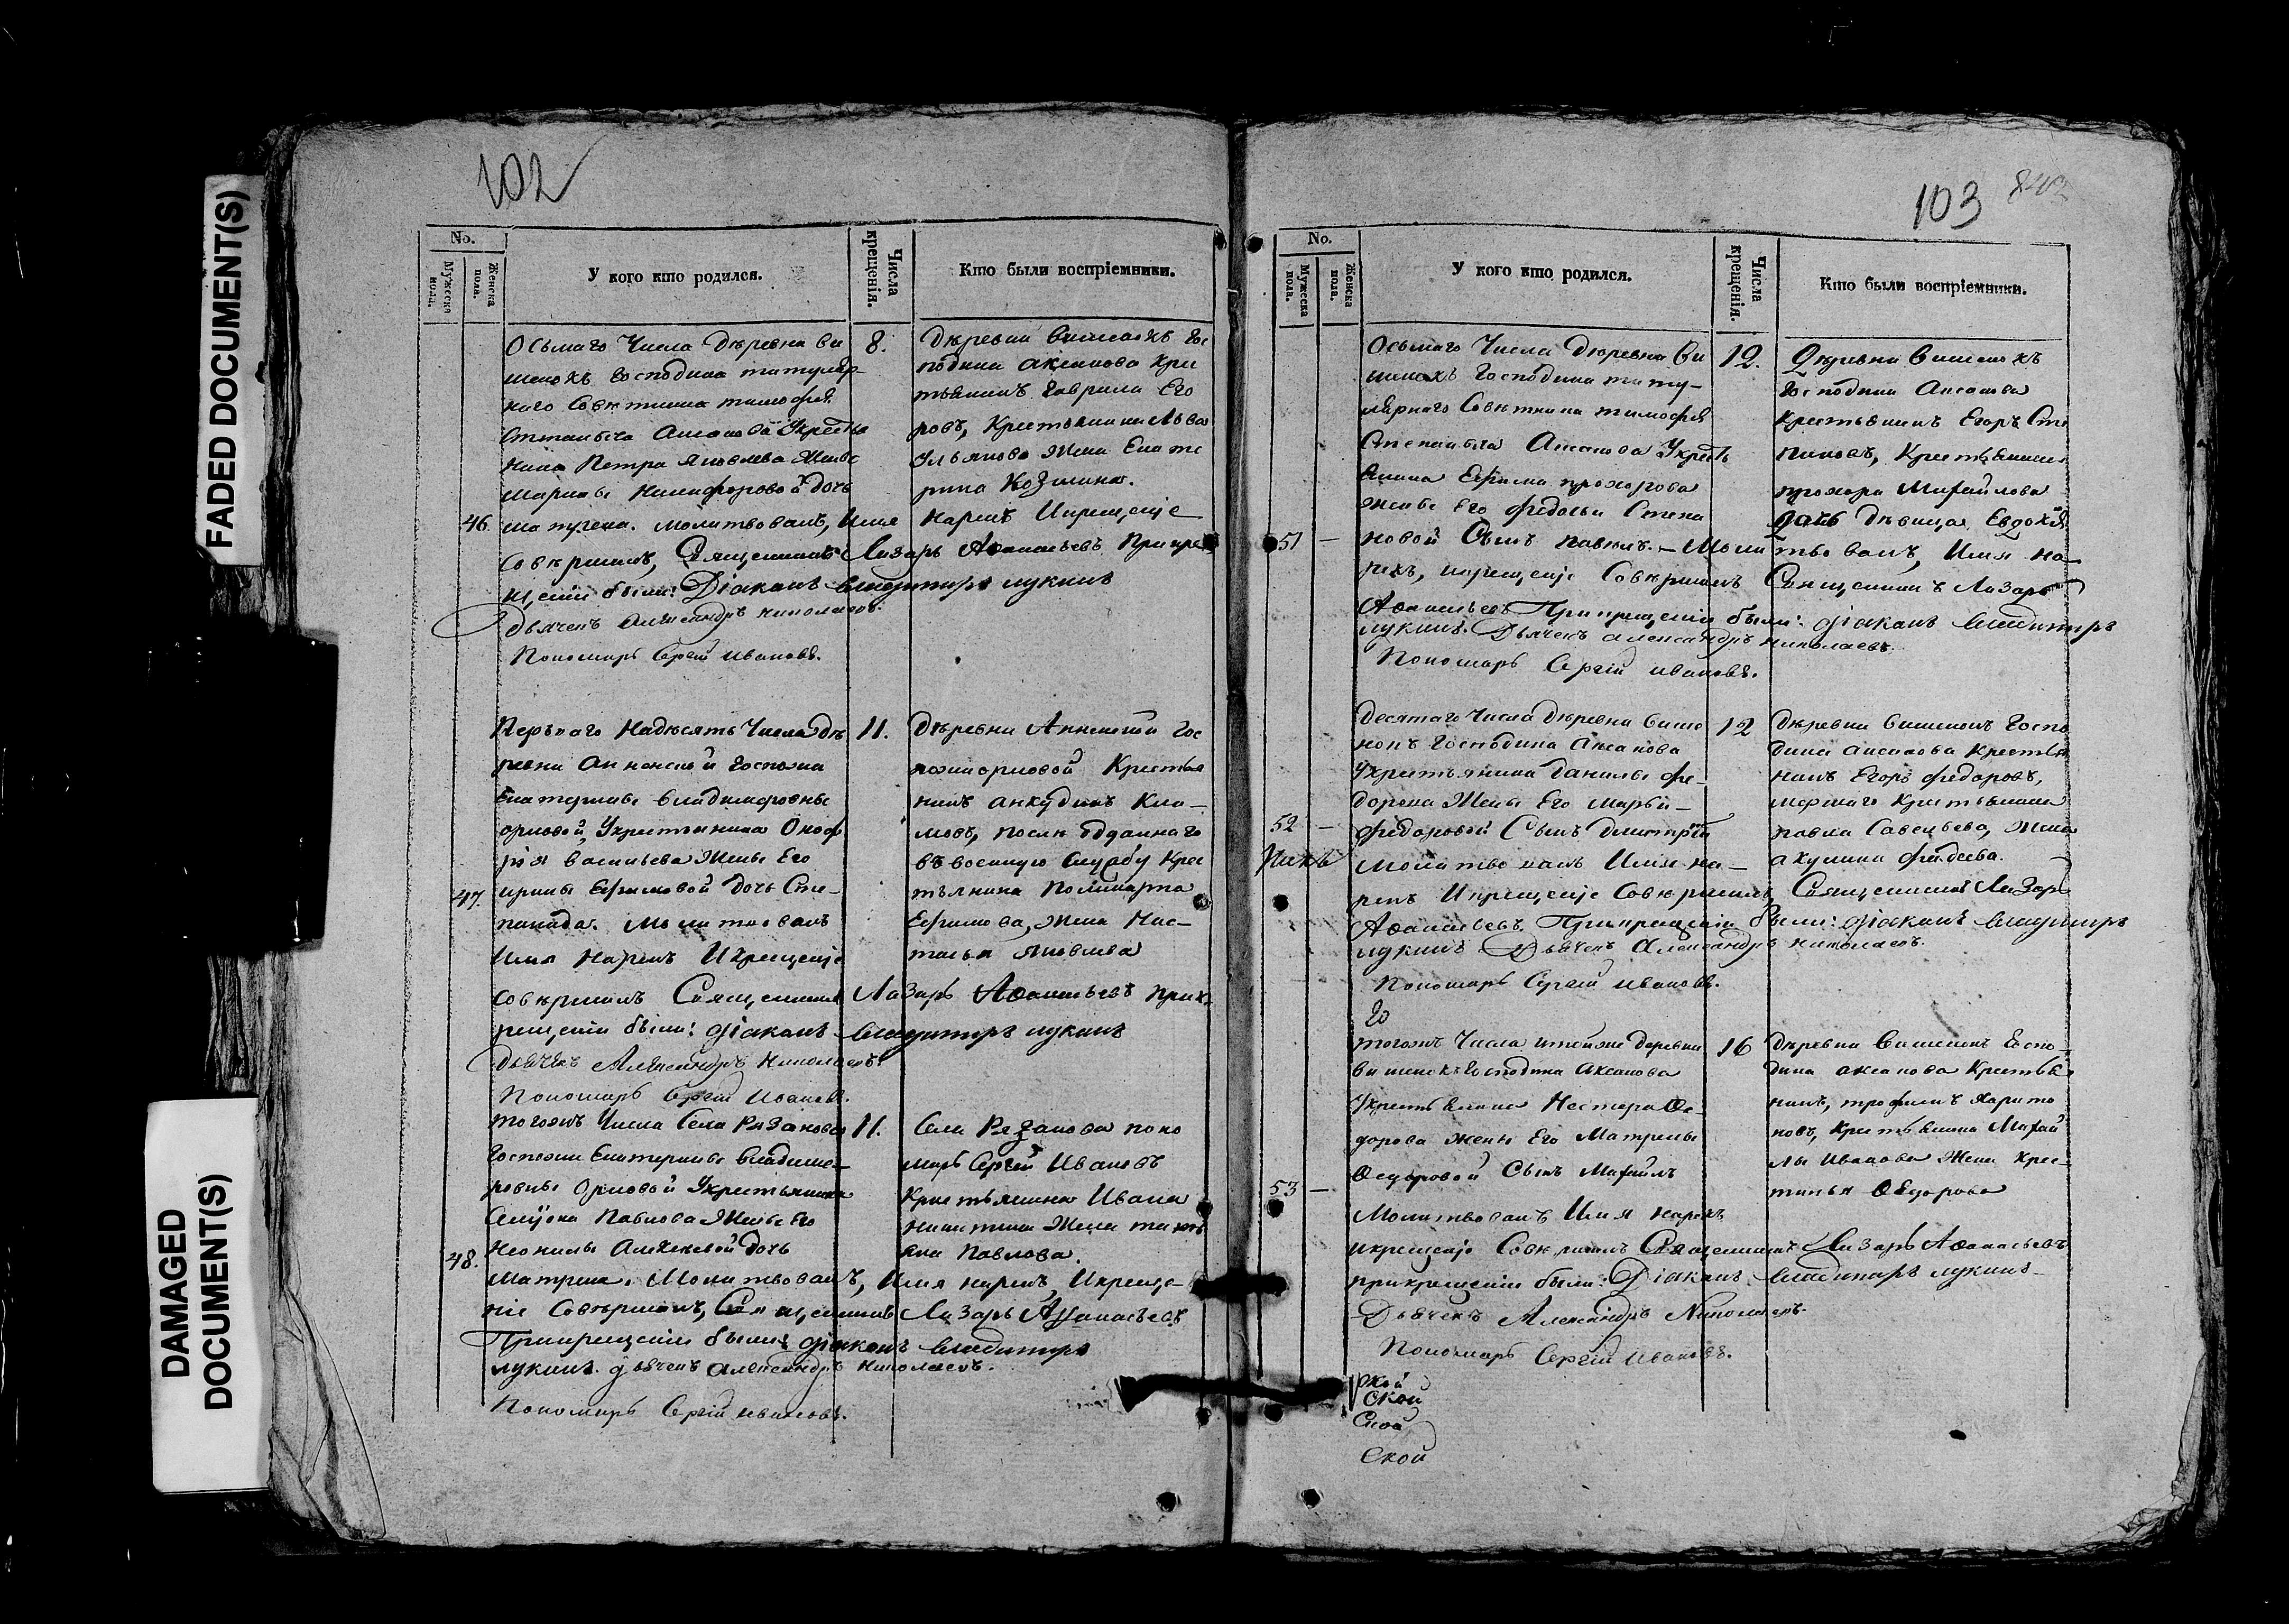 FADED DOCUMENT(S)
DAMAGED
DOCUMENT(S)
102
No.
Мужеска пола.
Женска пола.
У кого кто родился.
Числа крещенія.
Кто были воспріемники.
Осьмаго Числа Деревни Ви
шенокъ Господина титуляр-
наго Совѣтника тимофея
Аксакова Укрестья
нина Петра Яковлева Жены
Марины Никифоровой дочь
46. Молитвовалъ, Имя Нарекъ Икрещеніе
Совершилъ, Священникъ Лазарь Аѳанасьевъ Прикре
щеніи были: Діаконъ Владимиръ лукинъ
Дьячекъ Александръ николаевъ.
Пономарь Сергій ивановъ.
8.
Деревни Вишенокъ Гос
подина аксакова Крес
тьянинъ Гаврила Его
ровъ, Крестьянина Льва
Ульянова Жена Екате
рина Козмина.
Перваго Надесять Числа де
ревни Анненской Госпожи
Екатерины Владимировны
орловой, Укрестьянина Оноф
рія васильева Жены Его
47. ирины Ефимовой дочь Сте-
панида. Молитвовалъ
Имя Нарекъ Икрещеніе
Совершилъ Священникъ Лазарь Аѳанасьевъ Прик-
рещеніи были: діаконъ Владимиръ лукинъ
Дьячекъ Александръ Николаевъ
Пономарь Сергій Ивановъ.
11.
Деревни Анненской Гос
пожи орловой Крестья
нинъ анкудинъ Кли-
мовъ, после отданнаго
въ военную Службу Крес
тьянина Поликарпа
Ефимова, Жена Нас-
тасья Яковлева
тогожъ Числа Села Рязанова
Госпожи Екатерины Владими-
ровны Орловой Укрестьянина
Павлова Жены Его
48. Неонилы Алексеевой дочь
Матрена. Молитвовалъ, Имя нарекъ, Икреще-
ніе Совершилъ, Священникъ Лазарь Афанасьевъ
Прикрещеніи были: діаконъ Владимиръ
лукинъ. дьячекъ Александръ Николаевъ.
Пономарь Сергій ивановъ.
11.
Села Рязанова поно
марь Сергій Ивановъ
Крестьянина Ивана
Никитина Жена татья
на Павлова.
103
No.
Мужеска пола.
Женска пола.
У кого кто родился.
Числа крещенія.
Кто были воспріемники.
Осьмаго Числа Деревни Ви
шенокъ Господина титу-
лярнаго Совѣтника тимофея
Степаныча Аксакова Укресть
янина Ефима прохорова
жены Его федосьи Степа
51 — новой Сынъ павелъ. — Молитвовалъ, Имя на-
рекъ, икрещеніе Совершилъ Священникъ Лазарь
Аѳанасьевъ Прикрещеніи были: діаконъ Владимиръ
лукинъ. Дьячекъ александръ николаевъ.
Пономарь Сергій ивановъ.
12.
Деревни Вишенокъ
Господина Аксакова
Крестьянинъ Егоръ Сте
пановъ, Крестьянина
прохора Михайлова
дочь девица Евдокія
Десятаго Числа деревни Више
нокъ Господина Аксакова
Укрестьянина данилы фе-
дорова Жены Его Марьи —
52 — федоровой Сынъ дмитрій
Молитвовалъ Имя на-
рекъ Икрещеніе Совершилъ, Священникъ Лазарь
Аѳанасьевъ Прикрещеніи были: діаконъ Владимиръ
лукинъ Дьячекъ Александръ николаевъ.
Пономарь Сергій ивановъ.
12
Деревни Вишенокъ Госпо
дина аксакова Крестья
нинъ Егоръ федоровъ,
Крестьянина
павла Савельева, Жена
акулина фадеева.
Го
тогожъ Числа итойже деревни
вишенокъ Господина Аксакова
Укрестьянина Нестера Ѳе-
дорова жены Его Матрены
Ѳедоровой Сынъ Михаилъ
53 — Молитвовалъ Имя нарекъ
икрещеніе Совершилъ Священникъ Лазарь Аѳанасьевъ
прикрещеніи были: Діаконъ Владимиръ лукинъ
Дьячекъ Александръ Николаевъ.
Пономарь Сергій Ивановъ.
16
Деревни Вишенокъ Госпо
дина аксакова Крестья
нинъ, трофимъ Харито
новъ, Крестьянина Михай
лы Иванова Жена Крес-
тинья Ѳедорова
ской
Ской
Ской